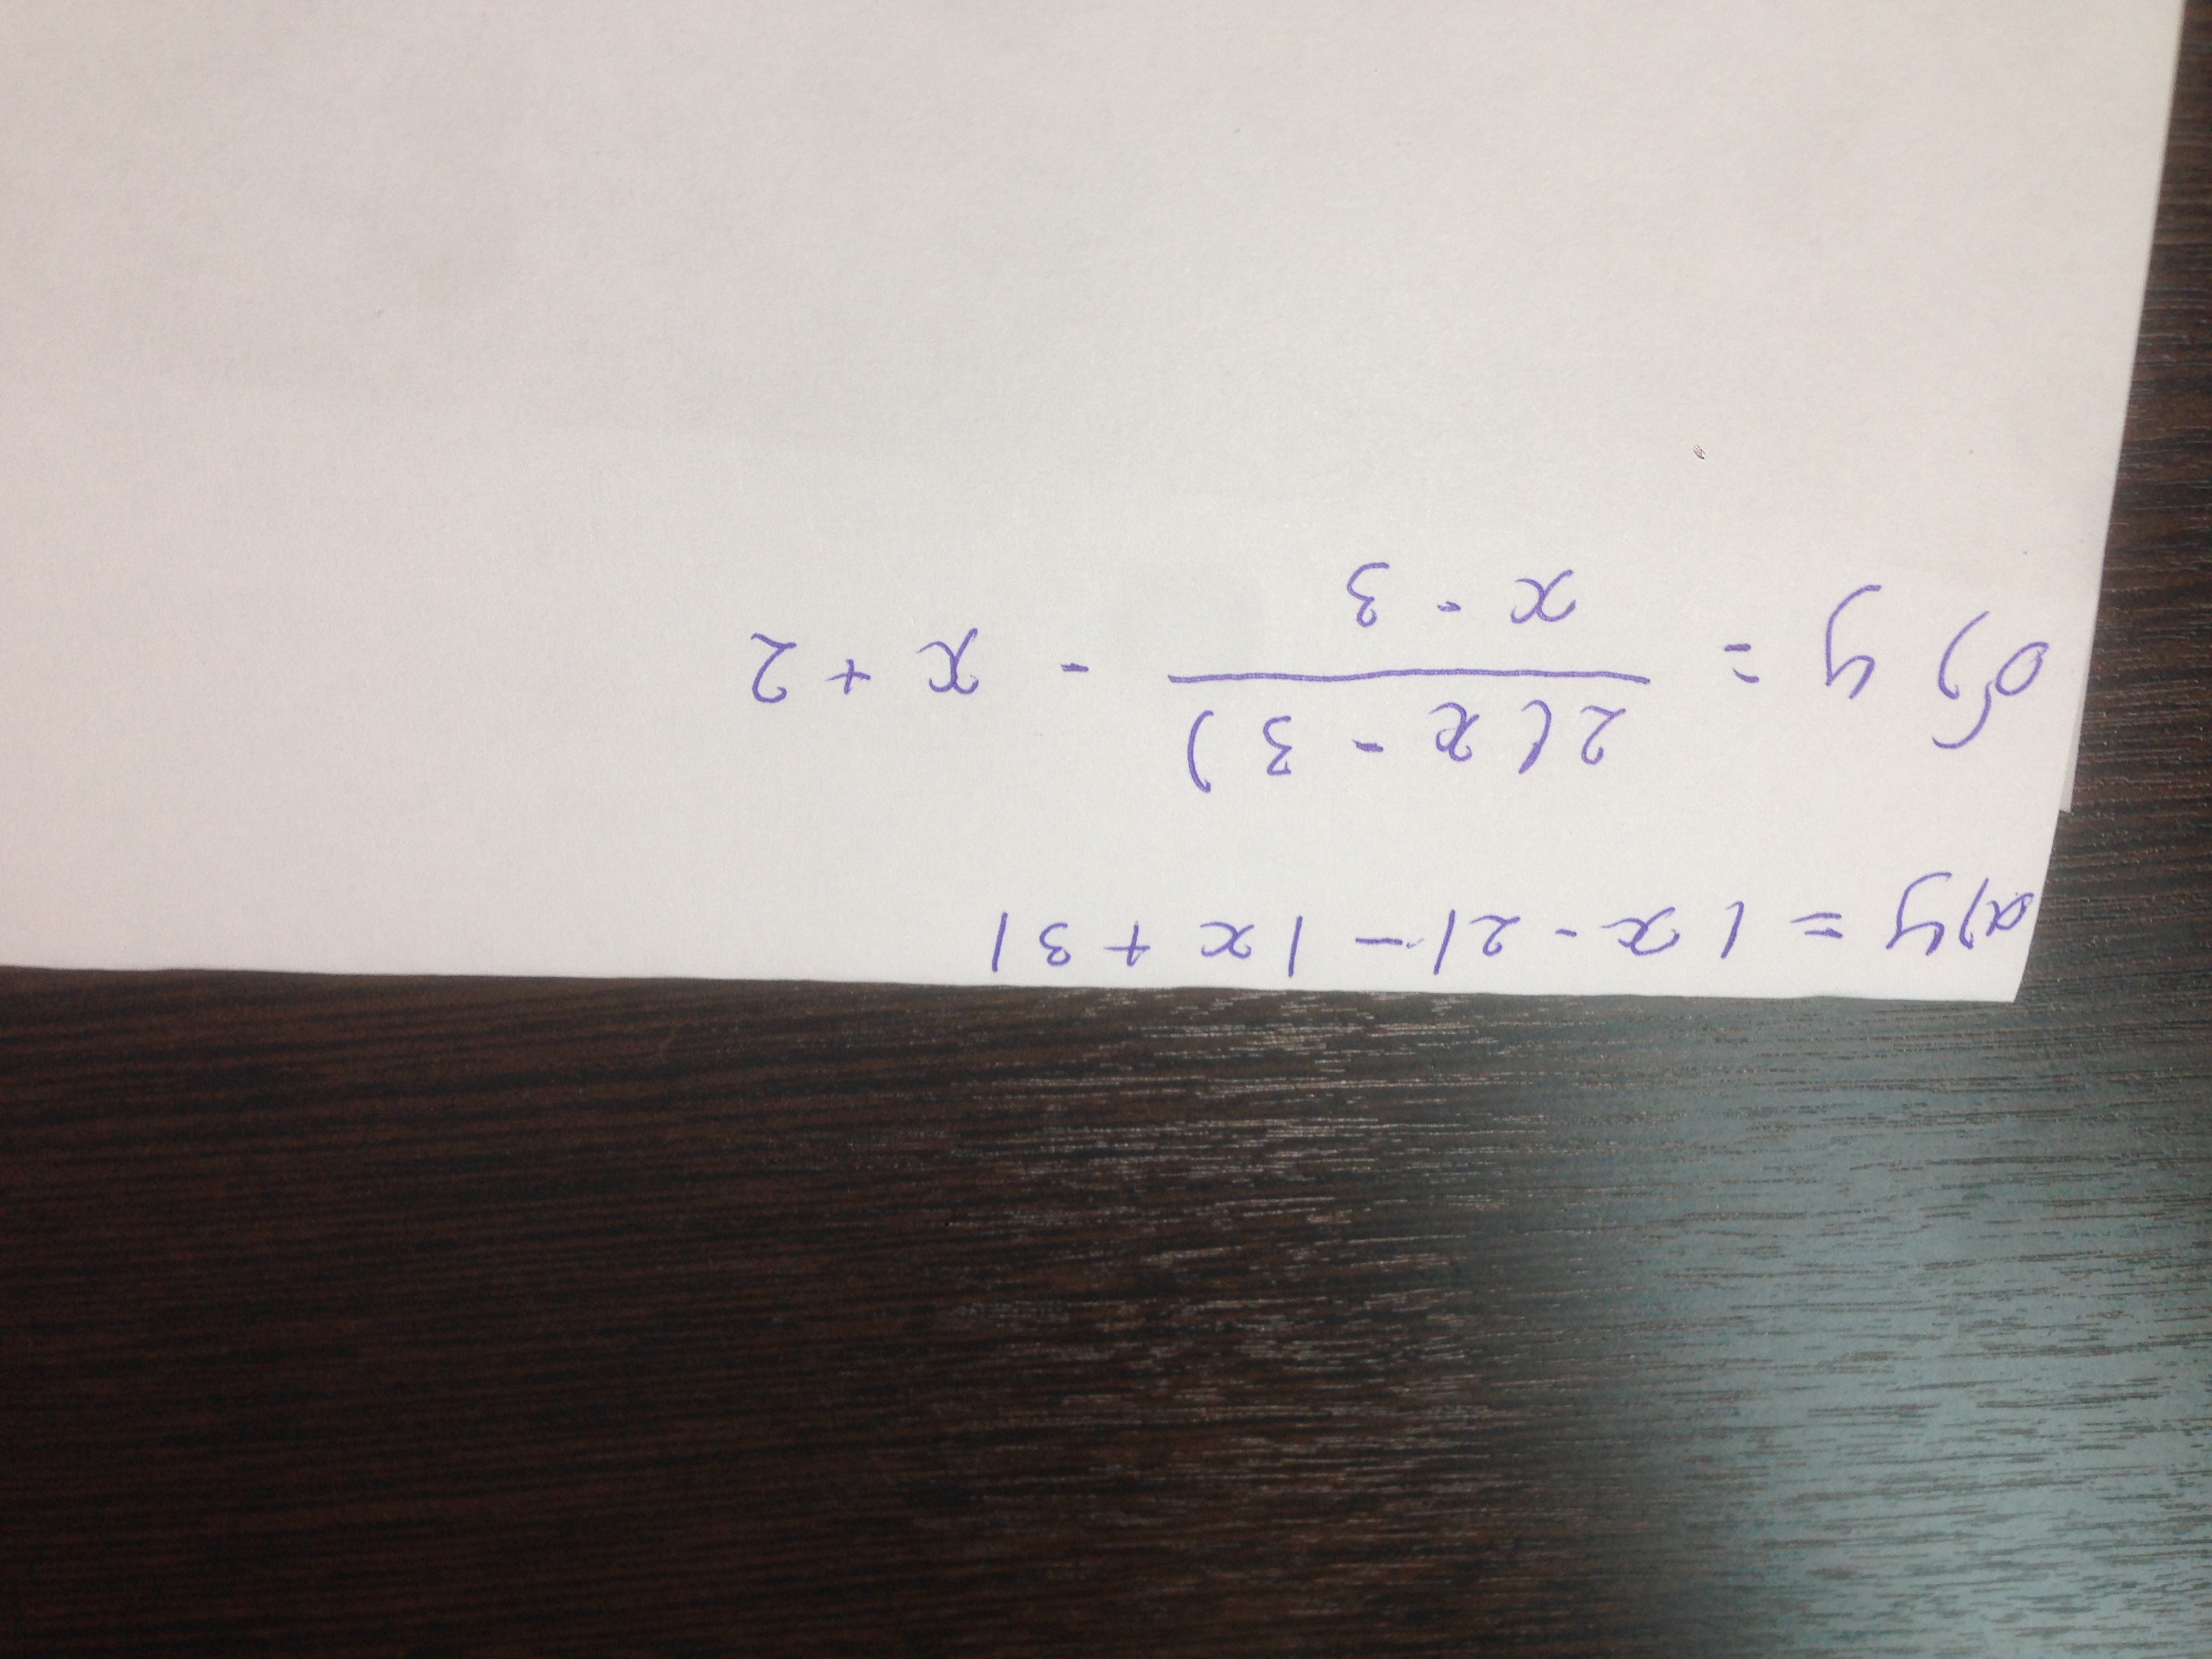 а) y = |x - 2| - |x + 3|
б) y = \frac{2(x - 3)}{x - 3} - x + 2